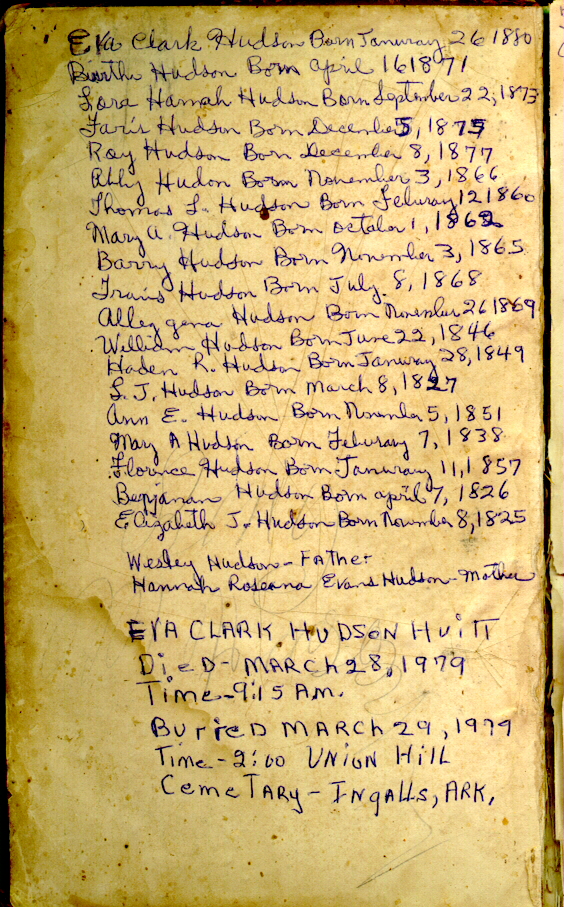 Eva Clark Hudson Born Januray 26 1880
Burtha Hudson Born april 16 1871
Lora Hannah Hudson Born September 22, 1873
Faris Hudson Born December 5, 1875
Roy Hudson Born December 8, 1877
Abby Hudon Born November 3, 1866
Thomas L. Hudson Born Feburay 12 1860
Mary A. Hudson Born octaber 1, 1862
Barry Hudson Born November 3, 1865
Travis Hudson Born July. 8, 1868
Alley gena Hudson Born November 26 1869
William Hudson Born June 22, 1846
Haden R. Hudson Born Januray 28, 1849
L. J. Hudson Born March 8, 1827
Ann E. Hudson Born November 5, 1851
Mary A Hudson Born Feburay 7, 1838
Florence Hudson Born Januray 11, 1857
Benjaman Hudson Born april 7, 1826
Elizabeth J. Hudson Born November 8, 1825
Wesley Hudson - Father
Hannah Roseana Evans Hudson - Mother
EVA CLARK HUDSON HUITT
DiED - MARCH 28, 1979
Time - 9:15 AM.
BURiED MARCH 29, 1979
Time - 2:00 UNION HiLL
CemeTARy - INgALLS, ARK,